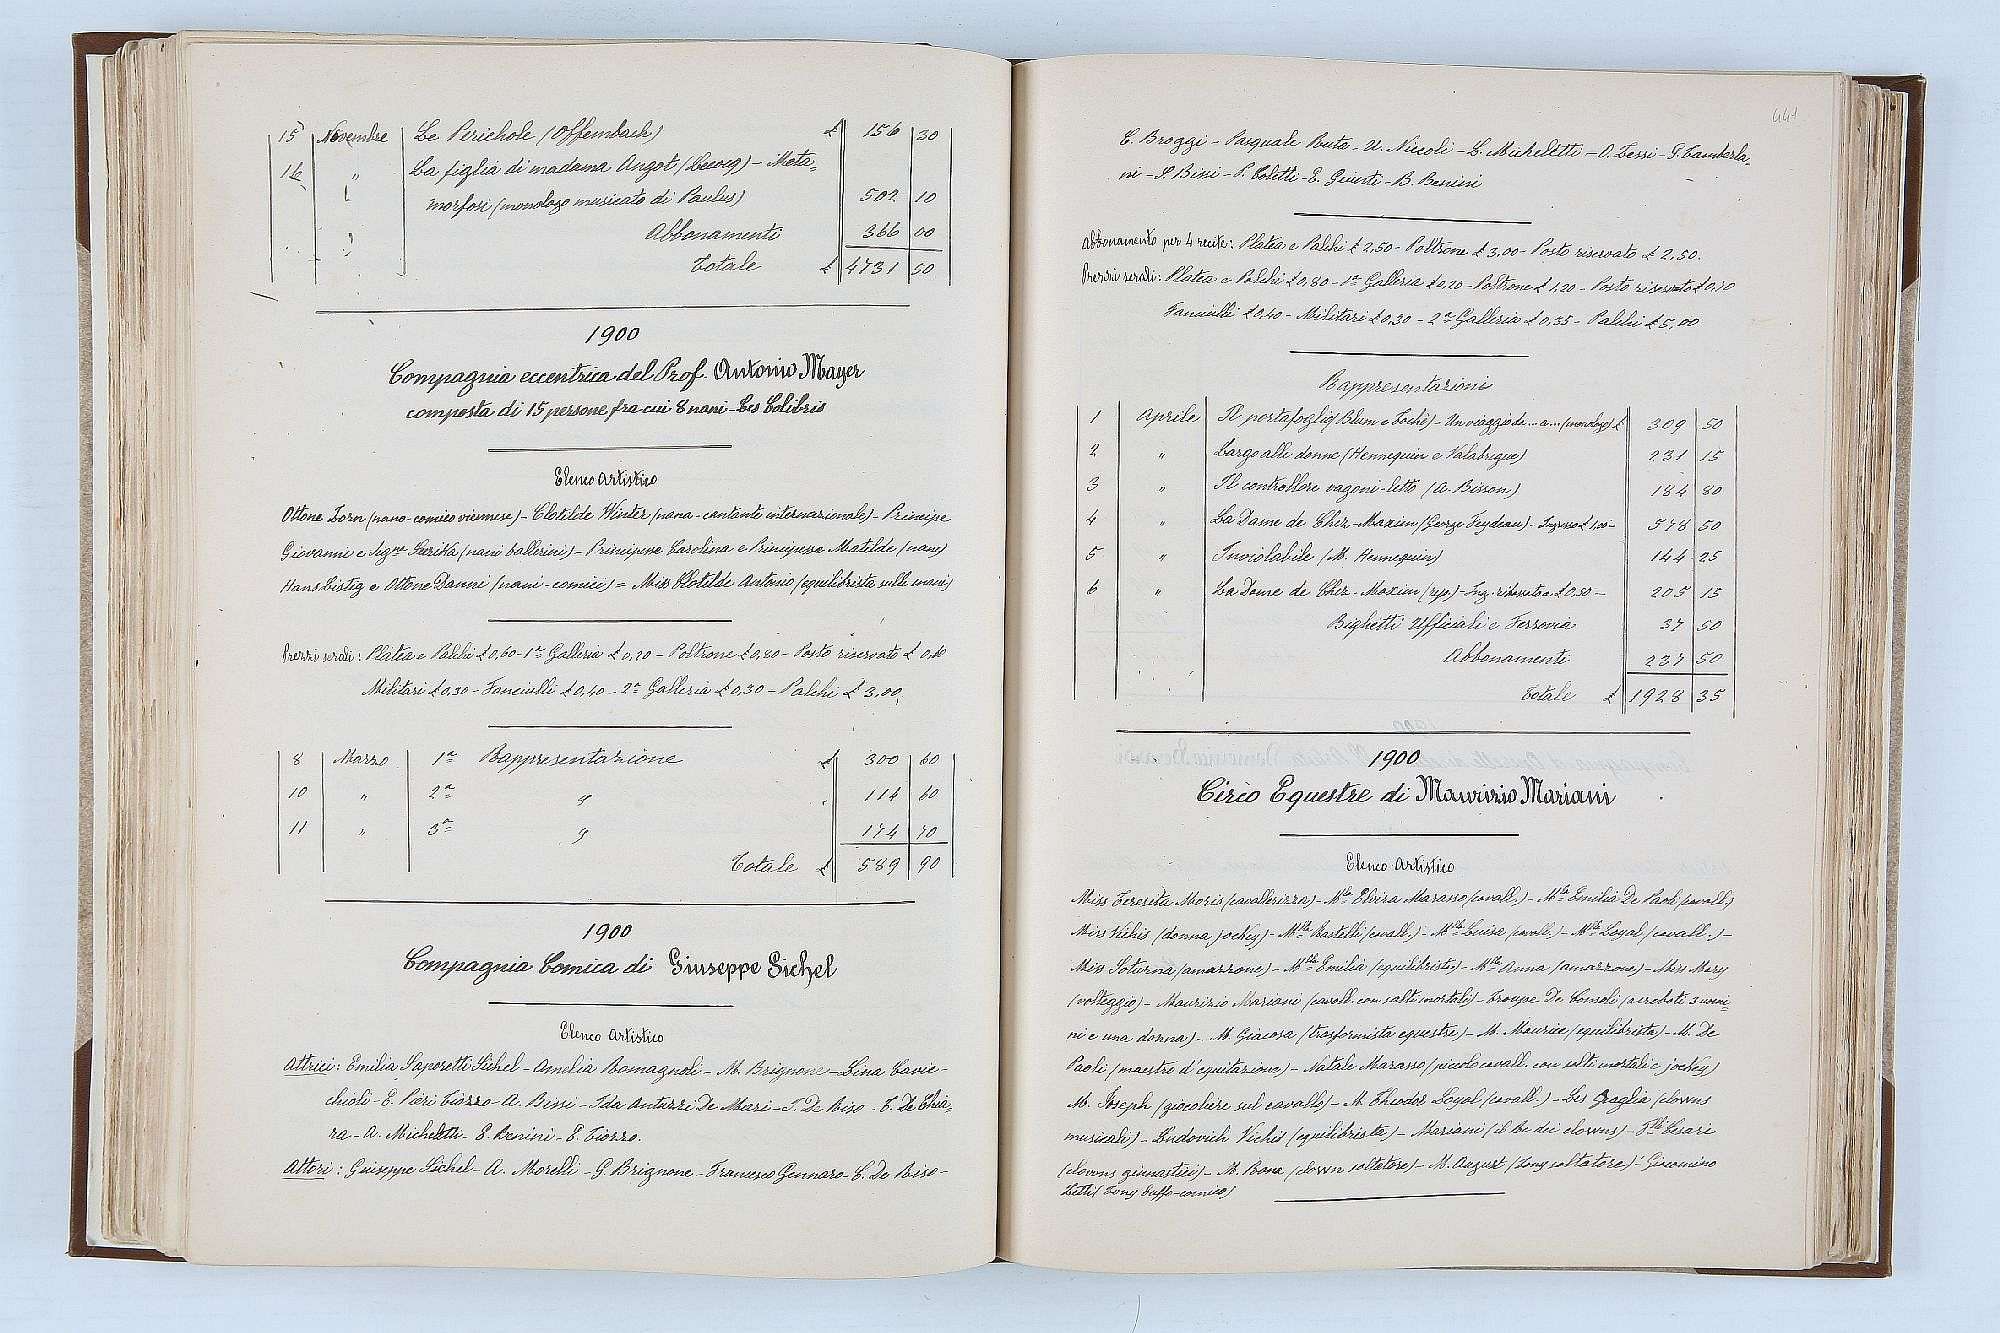 15 Novembre Le Perichole (Offembach) £ 156 30
16 " La figlia di madama Angot (Lecocq) - Meta-
morfosi (monologo musicato di Paulus) 502 10
Abbonamenti 366 00
Totale £ 4731 50
1900
Compagnia eccentrica del Prof. Antonio Mayer
composta di 15 persone fra cui 8 nani - Les Colibris
Elenco Artistico
Ottone Zorn (nano-comico viennese) - Clotilde Winter (nana-cantante internazionale) - Principe
Giovanni e (nani ballerini) - Principessa Carolina e Principessa Matilde (nane)
Hans Listig e Ottone Danni (nani-comici) = Miss Clotilde Antonio (equilibrista sulle mani)
Prezzi serali: Platea e Palchi £ 0,60 - 1ª Galleria £ 0,20 - Poltrone £ 0,80 - Posto riservato £ 0,40
Militari £ 0,30 - Fanciulli £ 0,40 - 2ª Galleria £ 0,30 - Palchi £ 3,00
8 Marzo 1ª Rappresentazione £ 300 60
10 " 2ª " 114 60
11 " 3ª " 174 70
Totale £ 589 90
1900
Compagnia Comica di Giuseppe Sichel
Elenco Artistico
Attrici: Emilia Saporetti Sichel - Amelia Romagnoli - M. Brignone - Lina Cavic-
chioli - E. Pieri Tiozzo - A. Bissi - Ida Anturzi De Mari - T. De Riso - T. De Chia-
ra - A. Micheletti - E. Benini - E. Tiozzo.
Attori: Giuseppe Sichel - A. Morelli - G Brignone - Francesco Gennaro - C. De Riso -
441
C. Broggi - Pasquale Ruta - U. Niccoli - L. Micheletti - O. Zessi - G. Tamberla-
ni - S. Bini - P. Coletti - E. Giusti - B. Benini
Abbonamento per 4 recite: Platea e Palchi £ 2,50 - Poltrone £ 3,00 - Posto riservato £ 2,50.
Prezzi serali: Platea e Palchi £ 0,80 - 1ª Galleria £ 0,20 - Poltrone £ 1,20 - Posto riservato £ 0,70
Fanciulli £ 0,40 - Militari £ 0,30 - 2ª Galleria £ 0,35 - Palchi £ 5,00
Rappresentazioni
1 Aprile Il portafoglio (Blum e Tochè) - Un viaggio da ... a ... (monologo) £ 309 50
2 " Largo alle donne (Hennequin e Valabregue) 231 15
3 " Il controllore vagoni-letto (A. Bisson) 184 80
4 " La Dame de Chez-Maxim (George Feydeau) - Ingresso £ 1,00 - 578 50
5 " Inviolabile (M. Hennequin) 144 25
6 " La Dame de Chez-Maxim (rep.) - Ing. ribassato a £ 0,50 - 205 15
Bighetti Ufficiali e Ferrovia 37 50
Abbonamenti 237 50
Totale £ 1928 35
1900
Circo Equestre di Maurizio Mariani
Elenco Artistico
Miss Teresita Moris (cavallerizza) - Mlle Elvira Marasso (cavall.) - Mlle Emilia De Paoli (cavall.)
Miss Vichis (donna jockey) - Mlle Rastelli (cavall.) - Mlle Luisa (cavall.) - Mlle Loyal (cavall.) -
Miss Soturna (amazzone) - Mlle Emilia (equilibrista) - Mlle Anna (amazzone) - Miss Mary
(volteggio) - Maurizio Mariani (cavall. con salti mortali) - Troupe De Consoli (acrobati 3 uomi-
ni e una donna) - M. Giacosa (trasformista equestre) - M. Maurice (equilibrista) - M. De
Paoli (maestro d'equitazione) - Natale Marasso (piccolo cavall. con salti mortali e jockey)
M. Joseph (giocoliere sul cavallo) - M. Theodor Loyal (cavall.) - Les Graglia (clowns
musicali) - Ludovich Vichis (equilibrista) - Mariani (il Re dei clowns) - Flli Cesari
(clowns ginnastici) - M. Bonx (clown saltatore) - M. August (Tony saltatore) - Giacomino
Zetti (Tony buffo-comico)